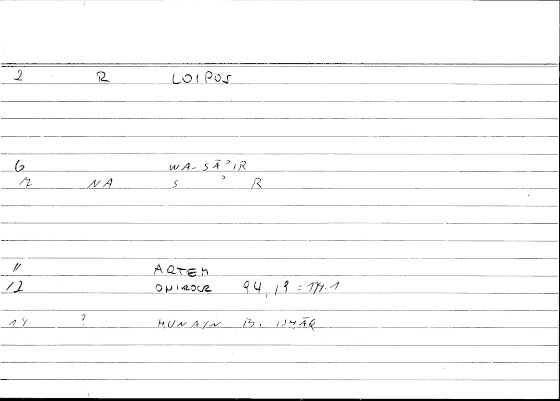 2 R LOIPOS
6 WA-SĀʾIR
12 NA S ʾ R
11 ARTEM
12 ONIROCR 94,19 = 179.1
14 ? HUNAYN B. ISHĀQ